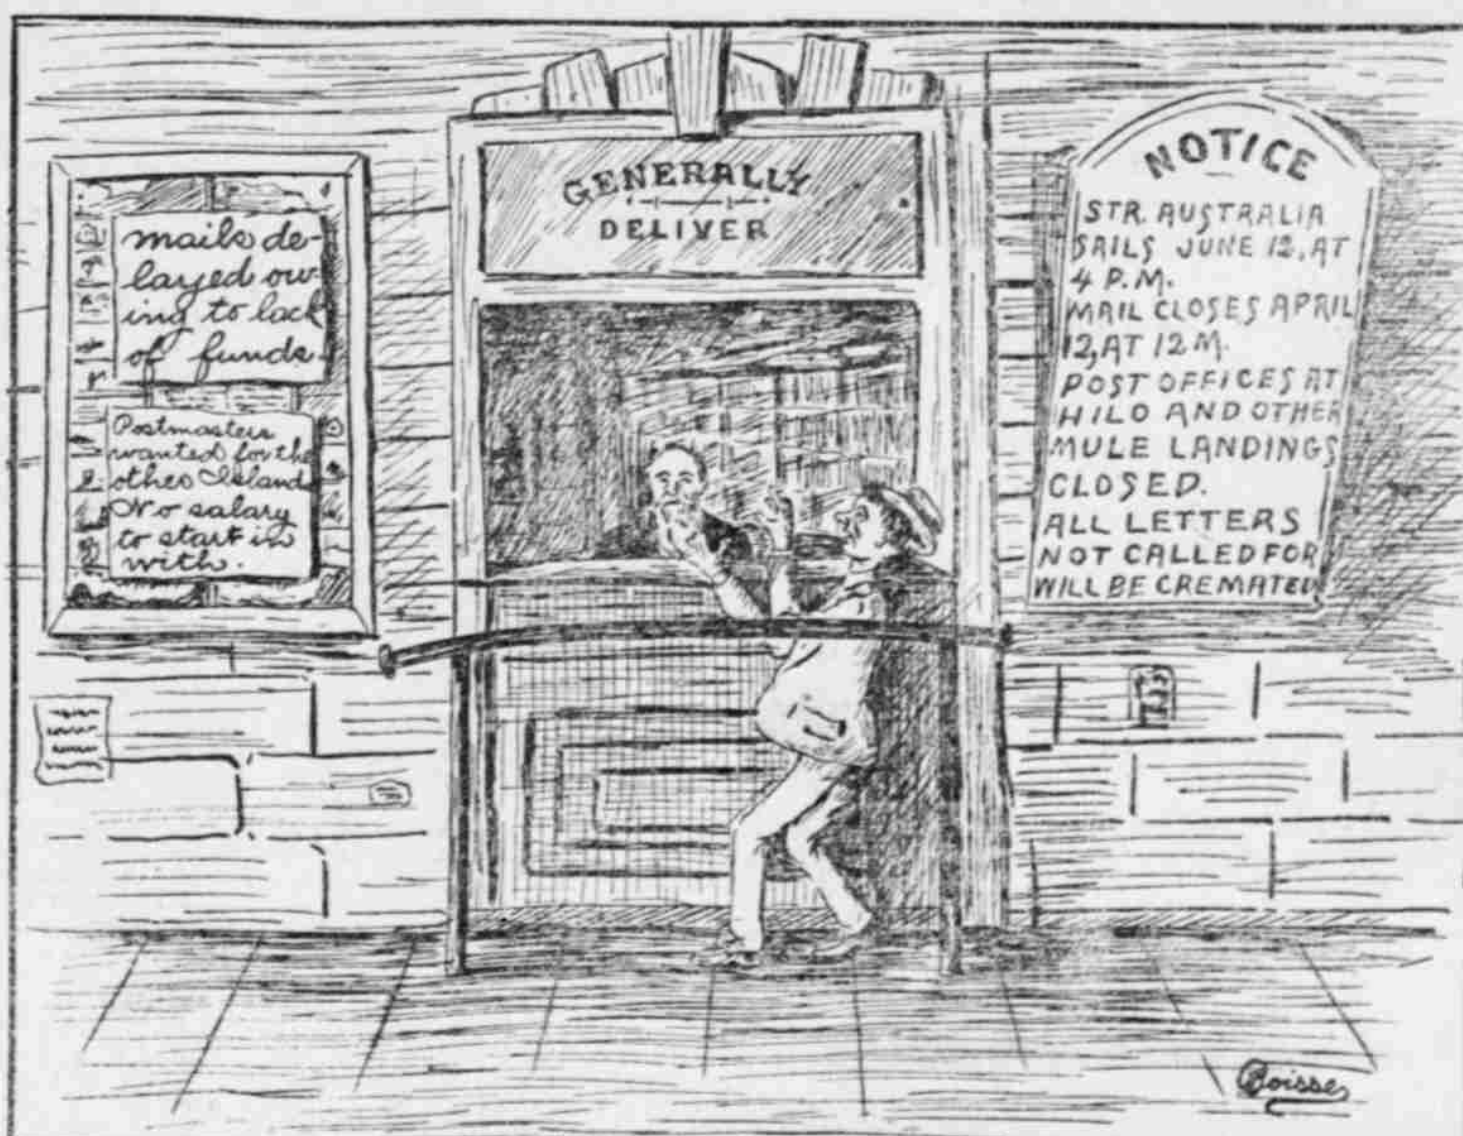 mails de-
layed ow-
ing to lack
of funds.
Postmasters
wanted for the
other Islands
No salary
to start in
with.
GENERALLY
DELIVER
NOTICE
STR. AUSTRALIA
SAILS JUNE 12, AT
4 P.M.
MAIL CLOSES APRIL
12, AT 12 M.
POST OFFICES AT
HILO AND OTHER
MULE LANDINGS
CLOSED.
ALL LETTERS
NOT CALLED FOR
WILL BE CREMATED
Boisse